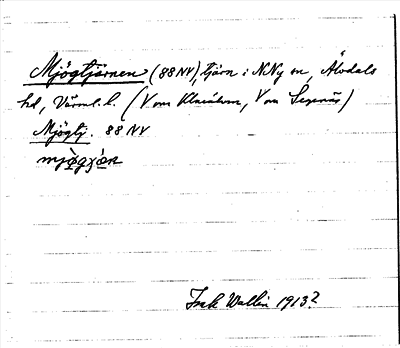 Mjögtjärnen (88 NV), tjärn i N Ny sn, Älvdals
hd, Värml. l. (V om Klarälven, V om Sysenäs)
Mjögtj. 88 NV
Wallin 1913?